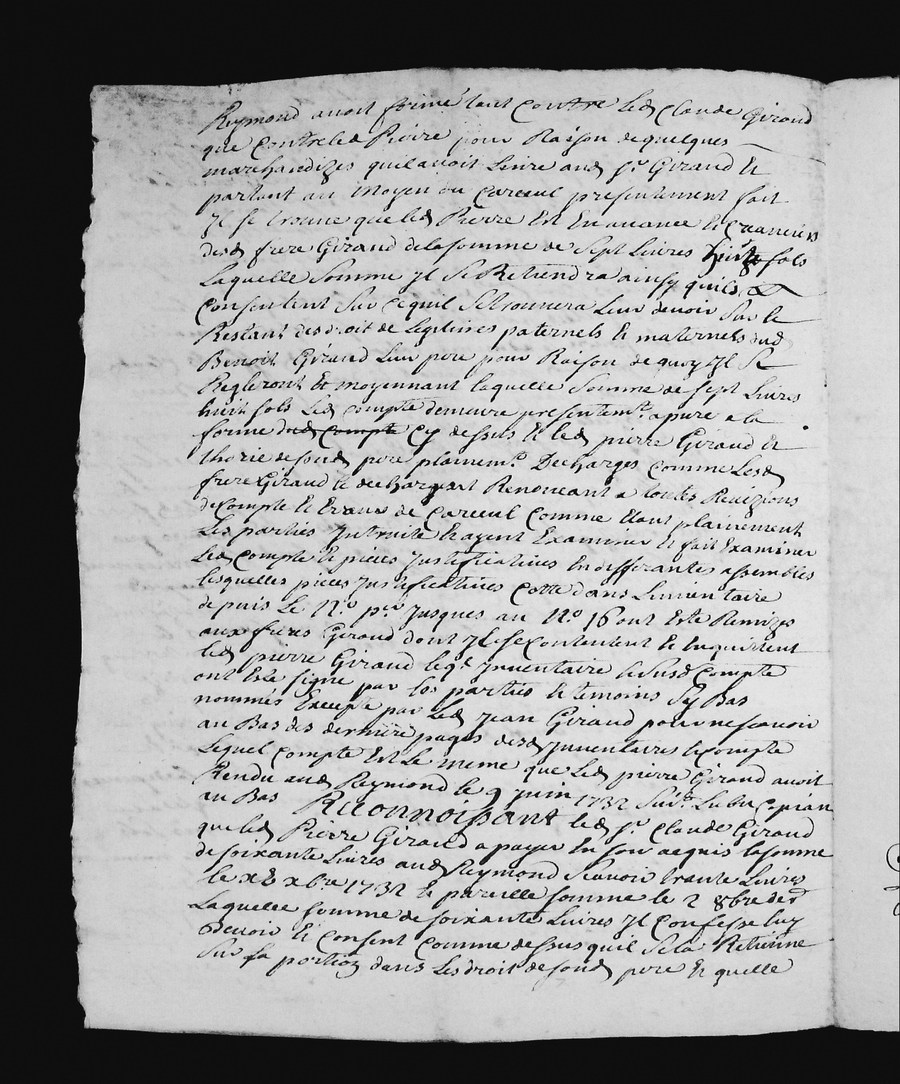 Reymond avoit formé tant contre led Claude Giroud
que contre led Pierre pour Raison de quelques
marchandizes quil avoit Livré aud Sr Giraud et
partant au moyen du careul presentement fait
yl se trouve que led Pierre Est En avance et creancier
desd frere Giraud de la somme de sept Livres huit sols
Laquelle Somme yl se Retiendra ainsy quils
Consentent Sur ce quil se trouvera Leur devoir Sur le
Restant des droit de Legitimes paternels et maternels dud
Benoit Giraud Leur pere pour Raison de quoy yl se
Regleront Et moyennant laquelle Somme de sept Livres
huit sols Led compte demeure presentemt apuré a la
forme dud compte cy dessus et led pierre Giraud et
de sond pere plainemt Decharges comme Lesd
frere Giraud le dechargent Renonceant a toutes Revizions
de Compte et Erreur de careul Comme Etant plainement
Les parties Instruite Et ayent Examiner Et fait Examiner
Led compte et pieces Justificatives En differantes assembles
lesquelles pieces Justificatives cotté dans Linventaire
depuis Le No per Jusques au No 16 ont Esté Remizes
aux freres Giraud dont yls se contentent et En quittent
led pierre Giraud leql Inventaire et susd compte
ont Esté signé par les parties et temoins Sy Bas
nommés Excepté par Led Jean Giraud pour ne scavoir
au Bas des derniere pages desd Inventaires et compte
Lequel compte Est Le meme que Led pierre Giraud avoit
Rendu aud Reymond le 9 juin 1732
au Bas Reconnoissant led Sr Claude Giraud
que led Pierre Giraud a payer En son acquis la somme
de soixante Livres aud Reymond Scavoir trante Livres
le xbre 1732 et pareille somme le 2 8bre der
Laquelle somme de soixante Livres yl Confesse luy
Devoir Et Consent Comme dessus quil Se la Retienne
Sur sa portion dans Les droit de sond pere Et quelle